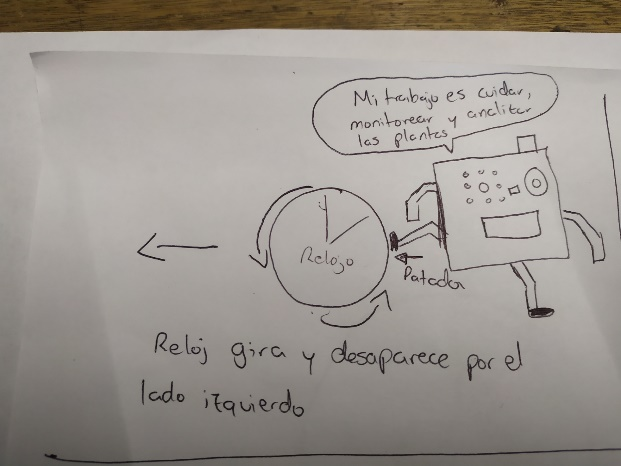 Mi trabajo es cuidar,
monitorear y analizar
las plantas
Reloj
Patada
Reloj gira y desaparece por el
lado izquierdo